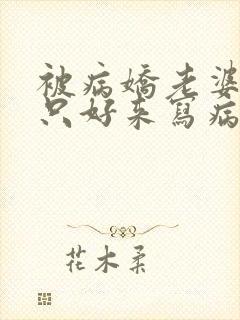 被病嬌老婆
只好来寫病
花木柔